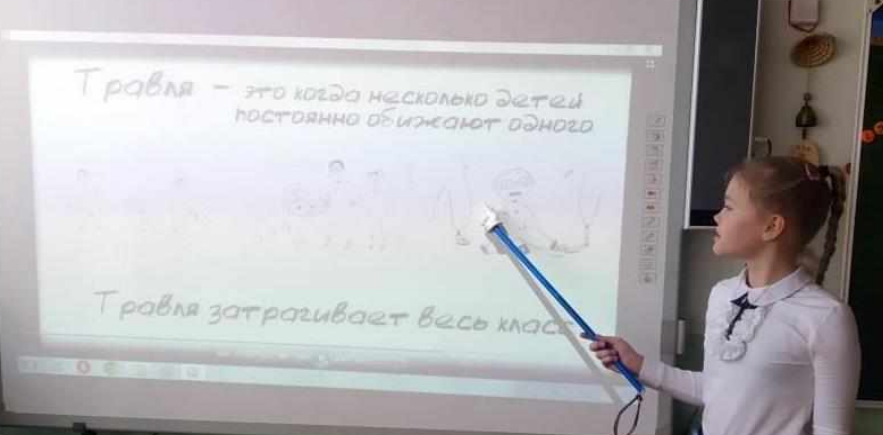 Травля - это когда несколько детей
постоянно обижают одного
Травля затрагивает весь класс